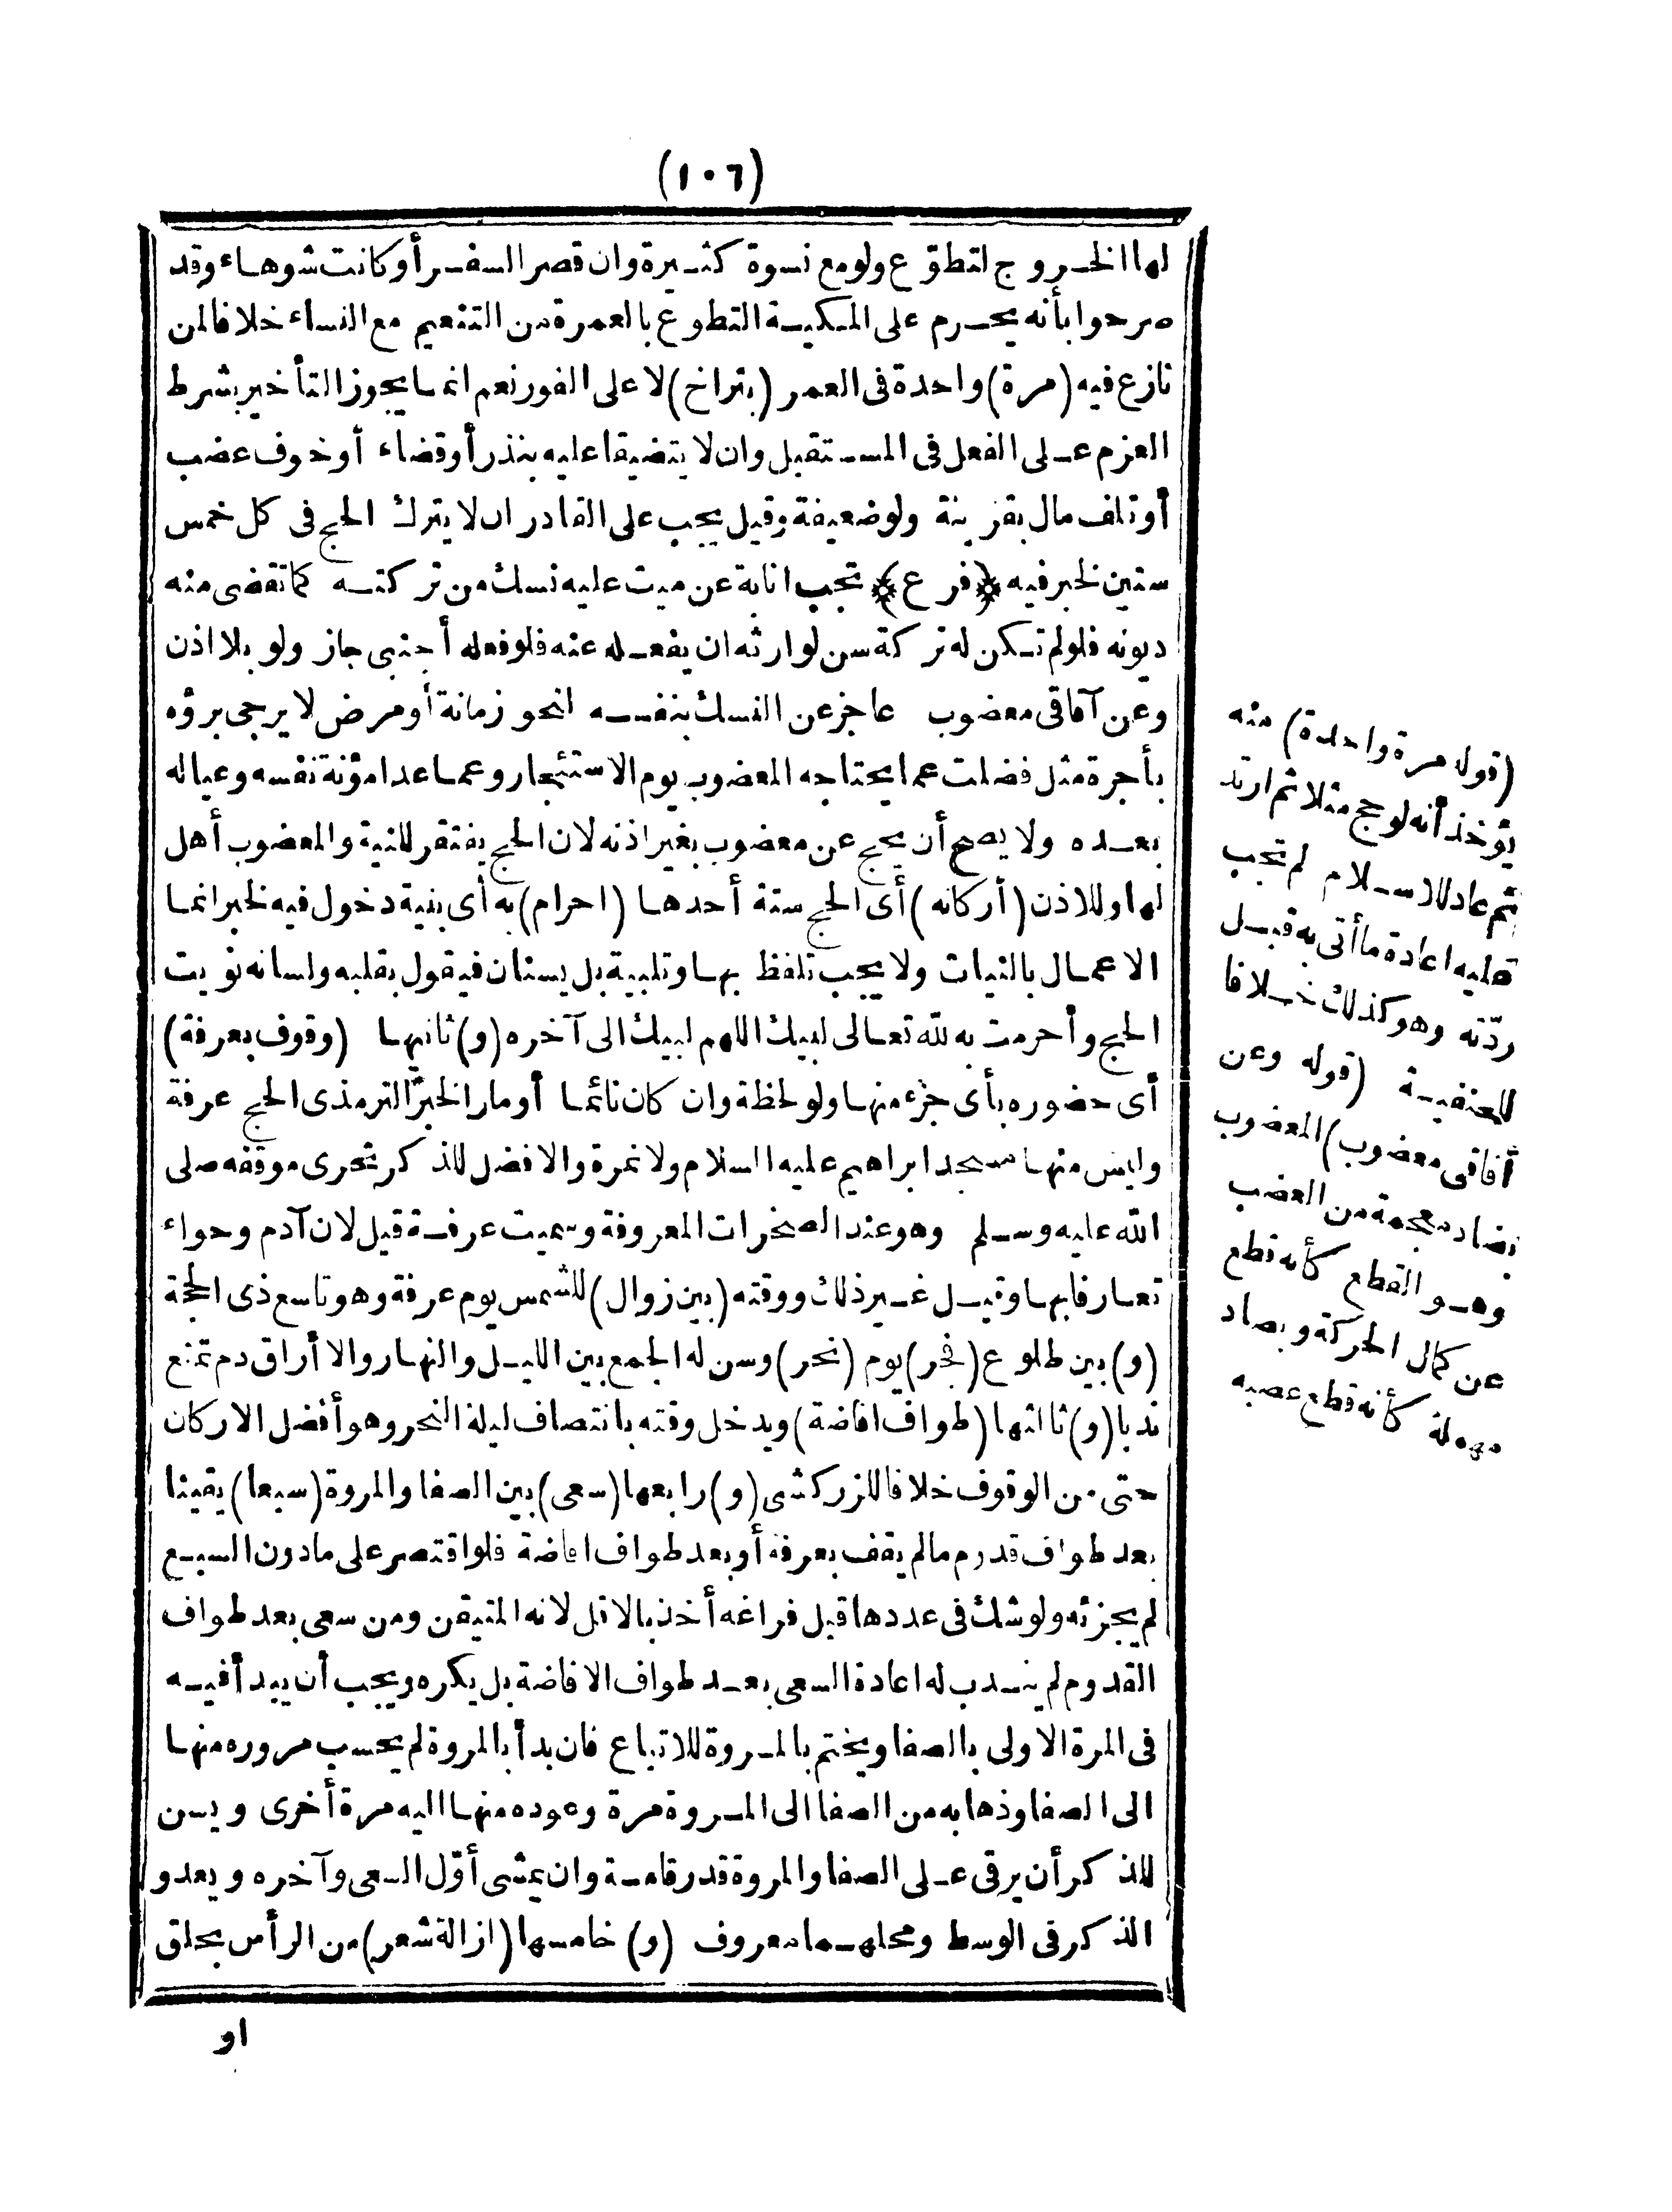 (١٠٦)
لها الخروج لتطوّع ولو مع نسوة كثيرة وان قصر السفر أو كانت شوهاء وقد
صرحوا بأنه يحرم على المكية التطوع بالعمرة من التنعيم مع النساء خلافا لمن
نازع فيه (مرة) واحدة فى العمر (بتراخ) لا على الفور نعم انما يجوز التأخير بشرط
العزم على الفعل فى المستقبل وان لا يتضيقا عليه بنذر أو قضاء أو خوف عضب
أو تلف مال بقرينة ولو ضعيفة وقيل يجب على القادر ان لا يترك الحج فى كل خمس
سنين لخبر فيه ﴿فرع﴾ تجب انابة عن ميت عليه نسك من تركته كما تقضى منه
ديونه فلو لم تكن له تركة سن لوارثه ان يفعله عنه فلو فعله أجنبى جاز ولو بلا اذن
وعن آفاقى معضوب عاجز عن النسك بنفسه لنحو زمانة أو مرض لا يرجى برؤه
بأجرة مثل فضلت عما يحتاجه المعضوب يوم الاستئجار وعما عدا مؤنة نفسه وعياله
بعده ولا يصح أن يحج عن معضوب بغير اذنه لان الحج يفتقر للنية والمعضوب أهل
لها وللاذن (أركانه) أى الحج ستة أحدها (احرام) به أى بنية دخول فيه لخبر انما
الاعمال بالنيات ولا يجب تلفظ بها وتلبية بل يسنان فيقول بقلبه ولسانه نويت
الحج وأحرمت به لله تعالى لبيك اللهم لبيك الى آخره (و) ثانيها (وقوف بعرفة)
أى حضوره بأى جزء منها ولو لحظة وان كان نائما أو مارا لخبر الترمذى الحج عرفة
وليس منها مسجد ابراهيم عليه السلام ولا نمرة والافضل للذكر تحرى موقفه صلى
الله عليه وسلم وهو عند الصخرات المعروفة وسميت عرفة قيل لان آدم وحواء
تعارفا بها وقيل غير ذلك ووقته (بين زوال) للشمس يوم عرفة وهو تاسع ذى الحجة
(و) بين طلوع (فجر) يوم (نحر) وسن له الجمع بين الليل والنهار والا أراق دم تمتع
ندبا (و) ثالثها (طواف افاضة) ويدخل وقته بانتصاف ليلة النحر وهو أفضل الاركان
حتى من الوقوف خلافا للزركشى (و) رابعها (سعى) بين الصفا والمروة (سبعا) يقينا
بعد طواف قدوم ما لم يقف بعرفة أو بعد طواف افاضة فلو اقتصر على ما دون السبع
لم يجزئه ولو شك فى عددها قبل فراغه أخذ بالاقل لانه المتيقن ومن سعى بعد طواف
القدوم لم يندب له اعادة السعى بعد طواف الافاضة بل يكره ويجب أن يبدأ فيه
فى المرة الاولى بالصفا ويختم بالمروة للاتباع فان بدأ بالمروة لم يحسب مروره منها
الى الصفا وذهابه من الصفا الى المروة مرة وعوده منها اليه مرة أخرى ويسن
للذكر أن يرقى على الصفا والمروة قدر قامة وان يمشى أوّل السعى وآخره ويعدو
الذكر فى الوسط ومحلهما معروف (و) خامسها (ازالة شعر) من الرأس بحلق
او
(قوله مرة واحدة) منه
يؤخذ أنه لو حج مثلا ثم ارتد
ثم عاد للاسلام لم تجب
عليه اعادة ما أتى به قبل
ردّته وهو كذلك خلافا
للحنفية (قوله وعن
آفاقى معضوب) المعضوب
بضاد معجمة من العضب
وهو القطع كأنه قطع
عن كمال الحركة وبصاد
مهملة كأنه قطع عصبه